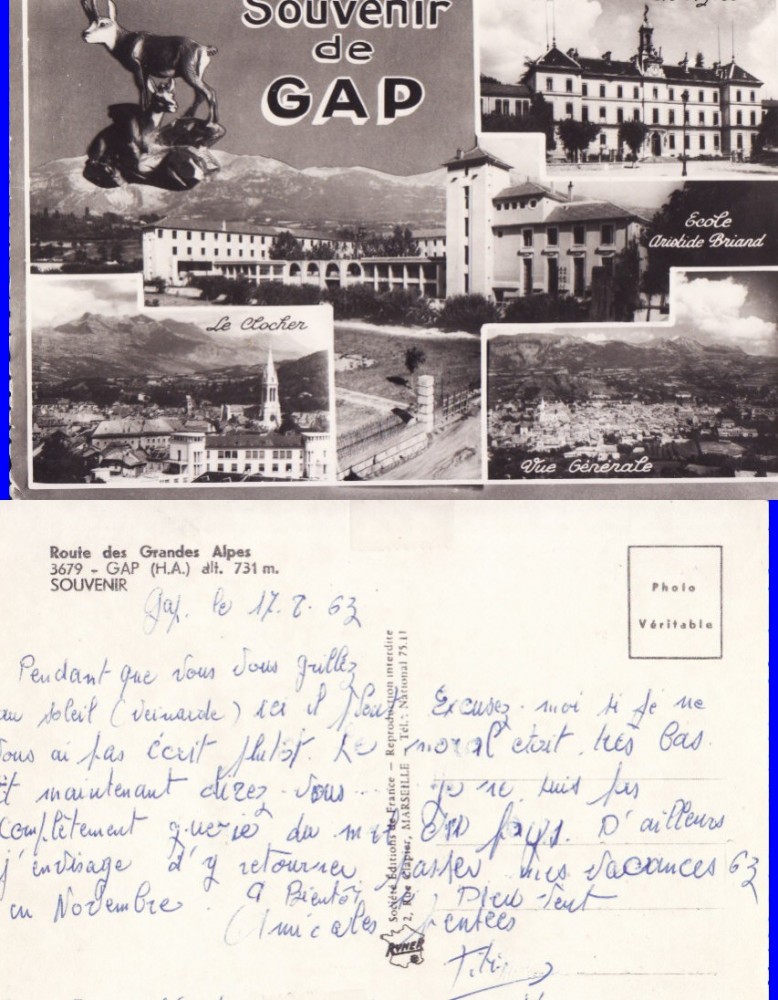 Souvenir
de
GAP
Ecole
Aristide Briand
Le Clocher
Vue Générale
Route des Grandes Alpes
3679 - GAP (H.A.) alt. 731 m.
SOUVENIR
Photo
Véritable
Gap. le 17. 8. 63
Pendant que vous vous grillez
au soleil (veinarde) ici il pleut
vous ai pas écrit plutôt. Le
Et maintenant direz-vous...
Complètement guérie du
j'envisage d'y retourner
en Novembre. A Bientôt
Excusez-moi si je ne
moral était très bas.
Je ne suis pas
pays. D'ailleurs
passer mes vacances 63
Dieu veut
Amicales pensées
Société Editions de France — Reproduction interdite
2, Rue Clapier, MARSEILLE — Tél.: National 75.11